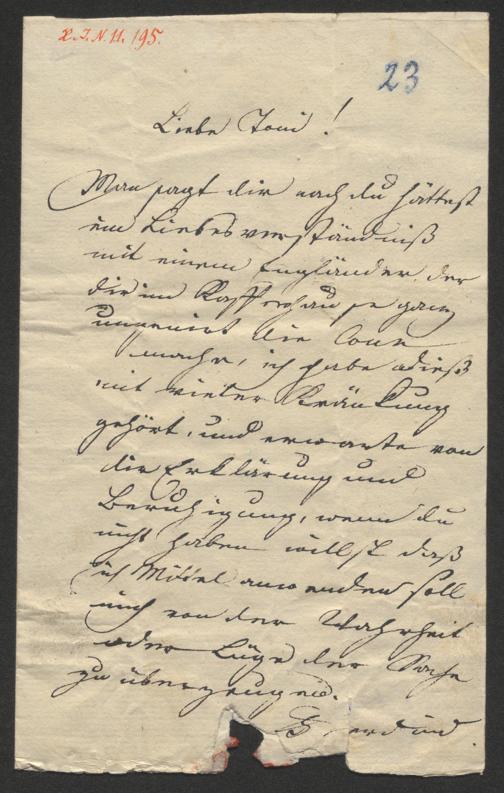 H.I.N. 11. 195.
23
Liebe Toni!
Man sagt dir nach du hättest
ein Liebesverständniß
mit einem Engländer der
dir im Kaffehause ganz
ungenirt die Cour
mache, ich habe dieß
mit vieler Kränkung
gehört, und erwarte von
dir Erklärung und
Beruhigung, wenn du
nicht haben willst daß
ich Mittel anwenden soll
mich von der Wahrheit
oder Lüge der Sache
zu überzeugen.
Ferdinand